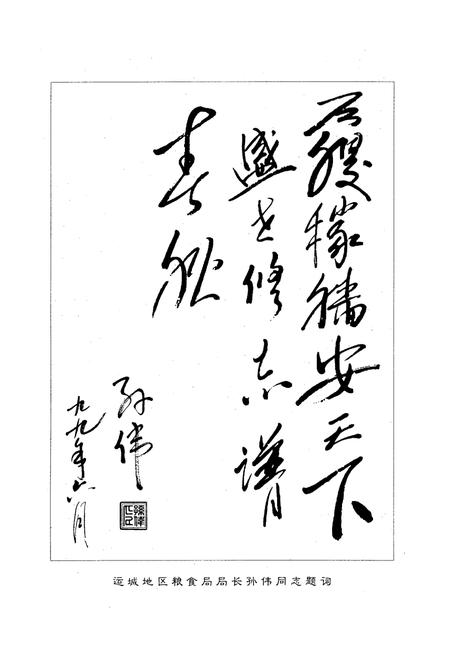 后稷稼穑安天下
盛世修志谱
春秋
孙伟
九九年六月
运城地区粮食局局长孙伟同志题词